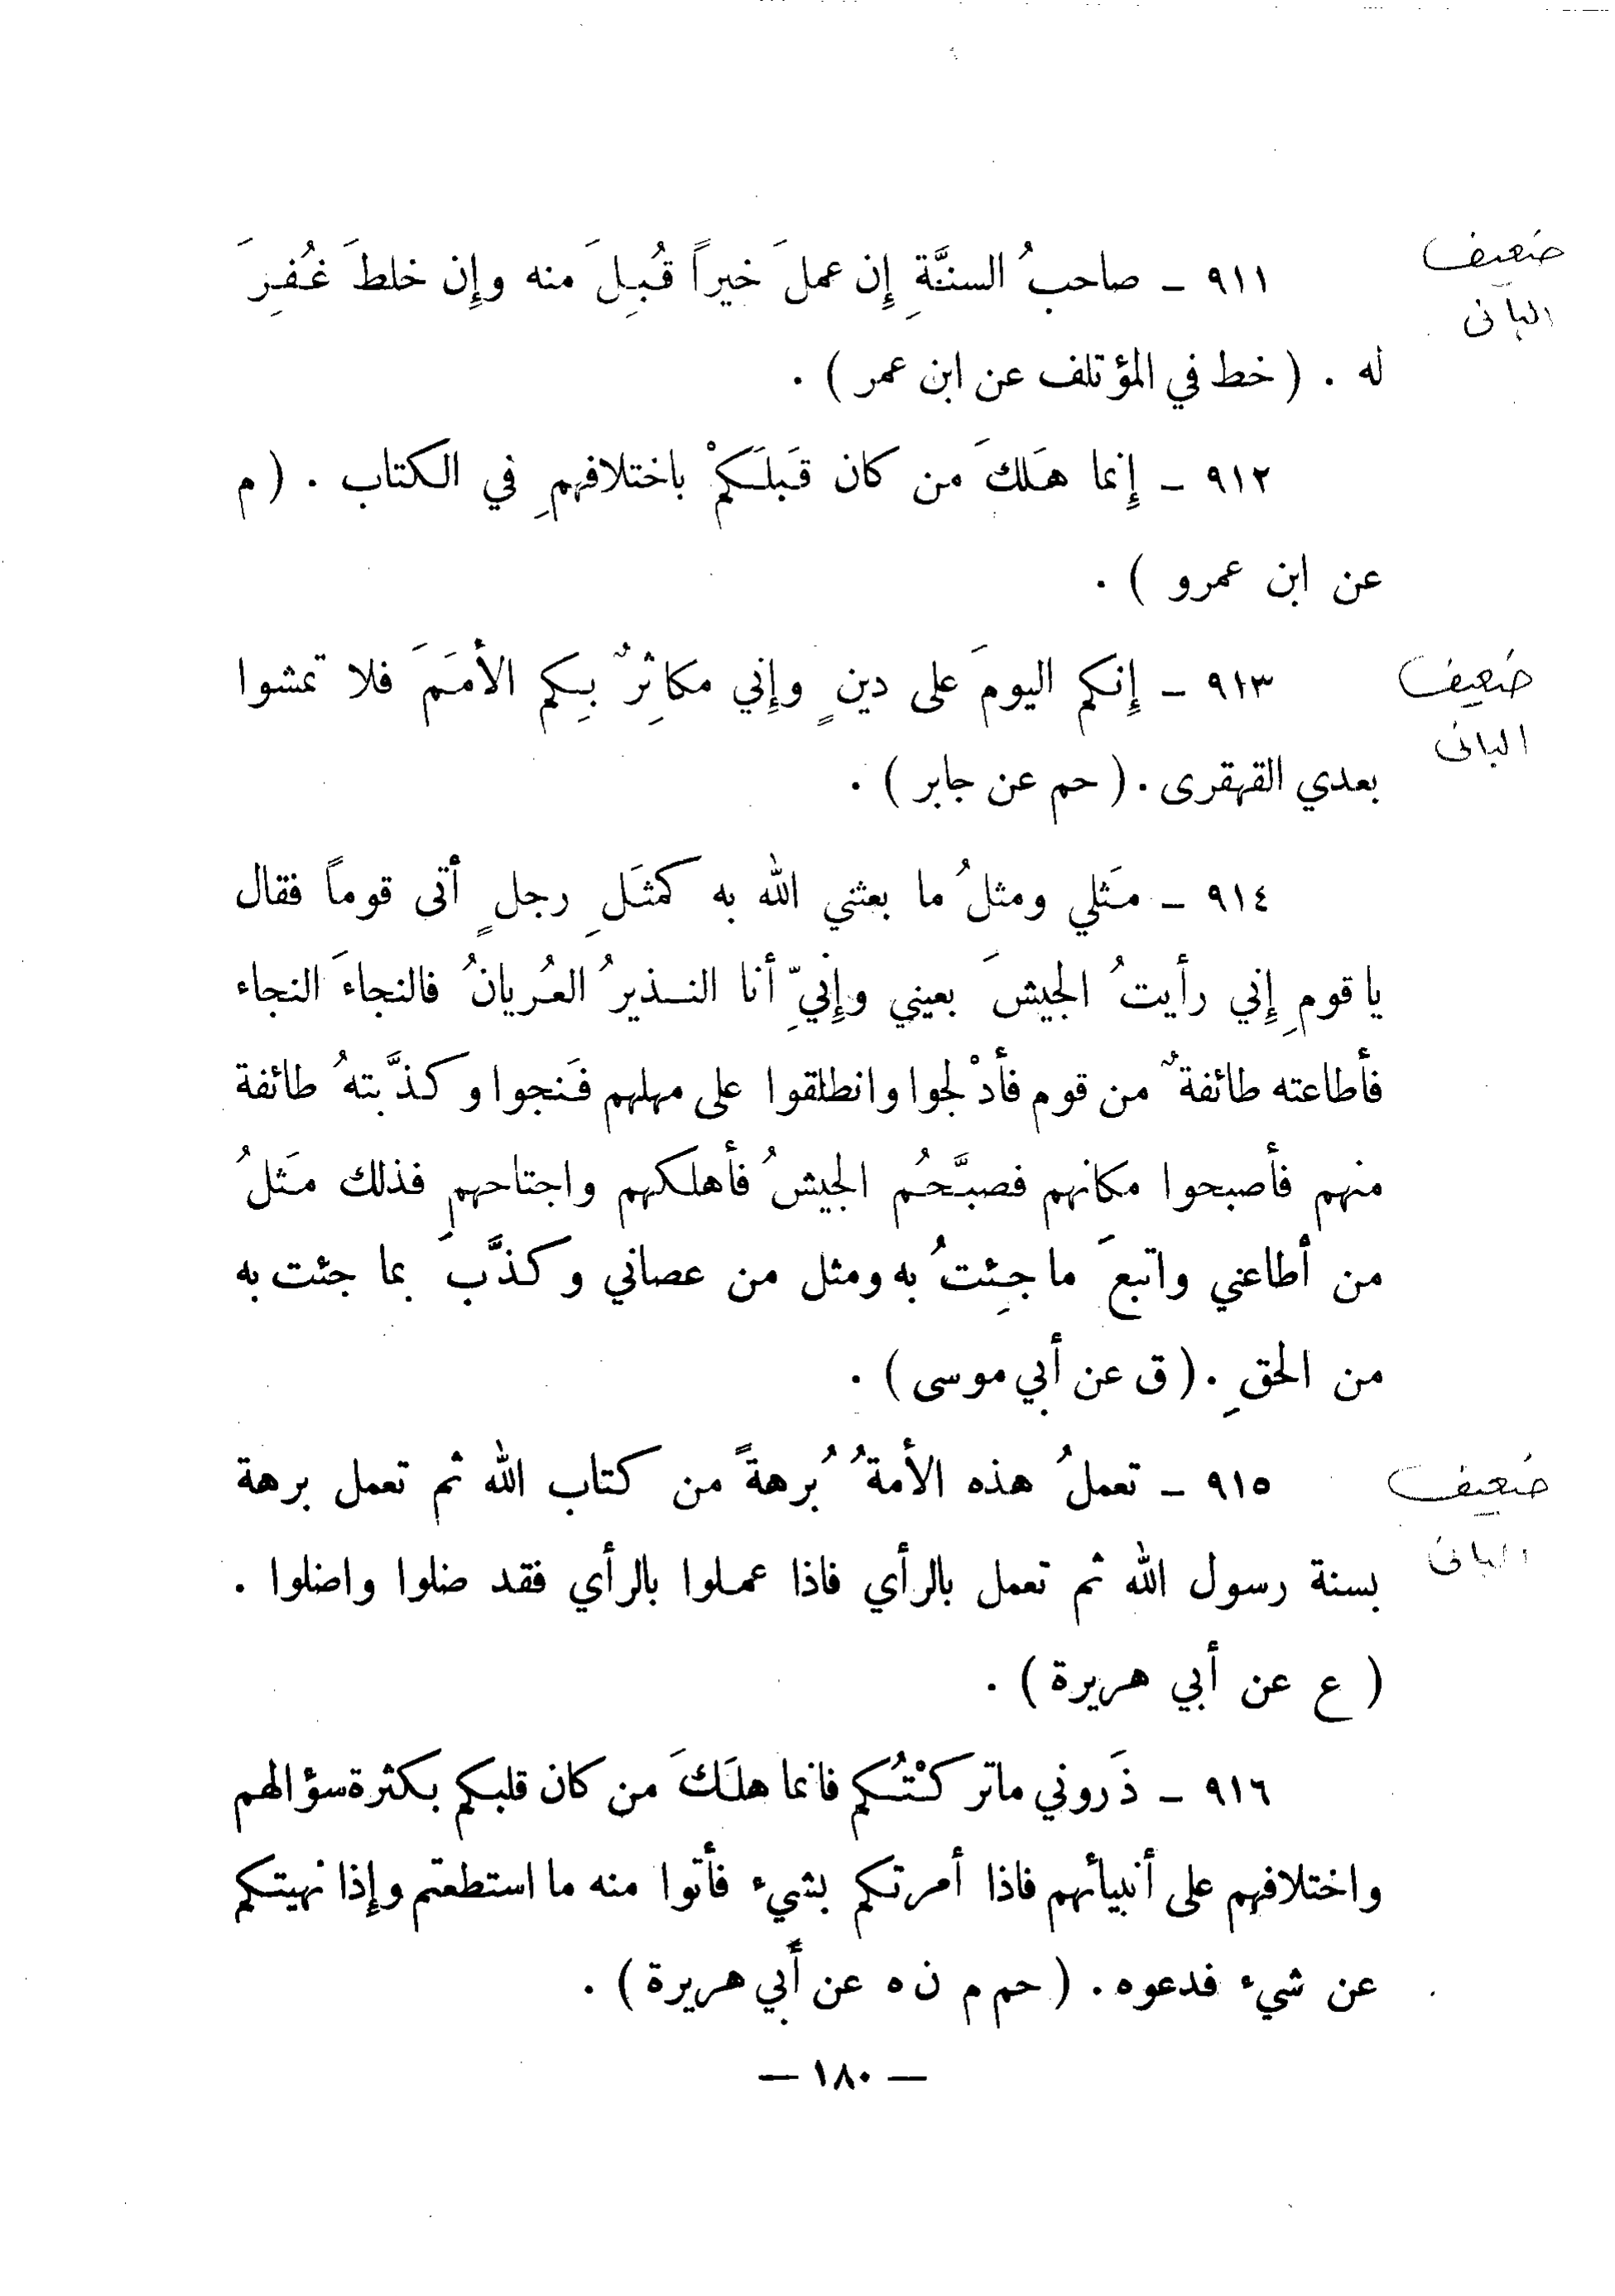 ٩١١ – صاحبُ السنَّةِ إِن عملَ خيراً قُبِلَ منه وإِن خلطَ غُفِرَ
ضعيف
البانى
له . ( خط في المؤتلف عن ابن عمر ) .
٩١٢ – إِنما هَلكَ من كان قَبلَكمْ باختلافهمِ في الكتاب . ( م
عن ابن عمرو ) .
٩١٣ – إِنكم اليومَ على دينٍ وإِني مكاثِرٌ بِكم الأمَمَ فلا تمشوا
ضعيف
البانى
بعدي القهقرى . ( حم عن جابر ) .
٩١٤ – مَثلي ومثلُ ما بعثني الله به كمثَلِ رجلٍ أتى قوماً فقال
ياقومِ إِني رأيتُ الجيشَ بعيني وإِنيِّ أنا النذيرُ العُريانُ فالنجاءَ النجاء
فأطاعته طائفةٌ من قوم فأدْلجوا وانطلقوا على مهلهم فَنجوا وكذَّبتهُ طائفة
منهم فأصبحوا مكانهم فصبَّحُم الجيشُ فأهلكهم واجتاحهم فذلك مَثلُ
من أطاعني واتبعَ ما جِئتُ به ومثل من عصاني وكذَّبَ بما جئت به
من الحقِ . ( ق عن أبي موسى ) .
٩١٥ – تعملُ هذه الأمةُ بُرهةً من كتاب الله ثم تعمل برهة
ضعيف
البانى
بسنة رسول الله ثم تعمل بالرأي فاذا عملوا بالرأي فقد ضلوا واضلوا .
( ع عن أبي هريرة ) .
٩١٦ – ذَروني ماتركْتُكم فانما هلَكَ من كان قلبكم بكثرة سؤالهم
واختلافهم على أنبيأئهم فاذا أمرتكم بشيء فأتوا منه ما استطعتم وإِذا نهيتكم
عن شيء فدعوه . ( حم م ن ه عن أبي هريرة ) .
— ١٨٠ —